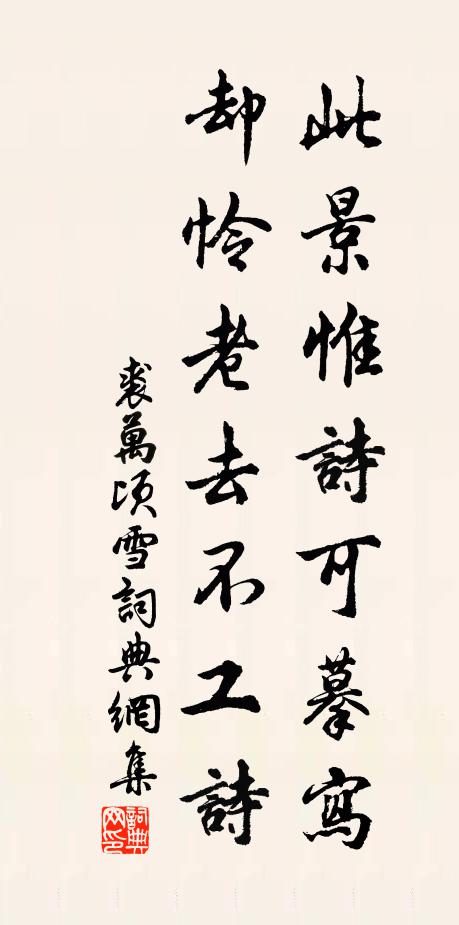 此景惟詩可摹寫
却怜老去不工詩
裘萬頃雪詞典網集
詞典网印